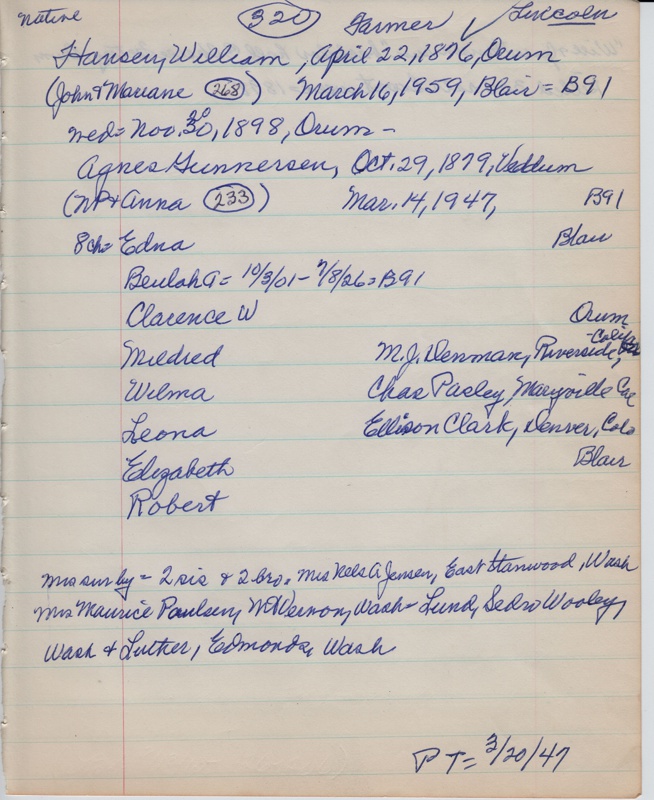 Native 320 Farmer ✓ Lincoln
Hansen, William, April 22, 1876, Orum
(John & Mariane 268) March 16, 1959, Blair = B91
wed = Nov. 30, 1898, Orum -
Agnes Gunnersen, Oct. 29, 1879, Veddum
(NP & Anna 233) Mar. 14, 1947, B91
8ch = Edna Blair
Beulah A = 10/3/01 - 7/8/26 = B91
Clarence W Orum
Mildred M.J. Denman, Riverside, Calif
Wilma Chas Pasley, Marysville
Leona Ellison Clark, Denver, Colo
Elizabeth Blair
Robert
Mrs sur by = 2 sis & 2 bro. Mrs Nels A Jensen, East Stanwood, Wash
Mrs Maurice Paulsen, Mt Vernon, Wash - Lund, Sedro Wooley,
Wash & Luther, Edmonds, Wash
PT = 3/20/47